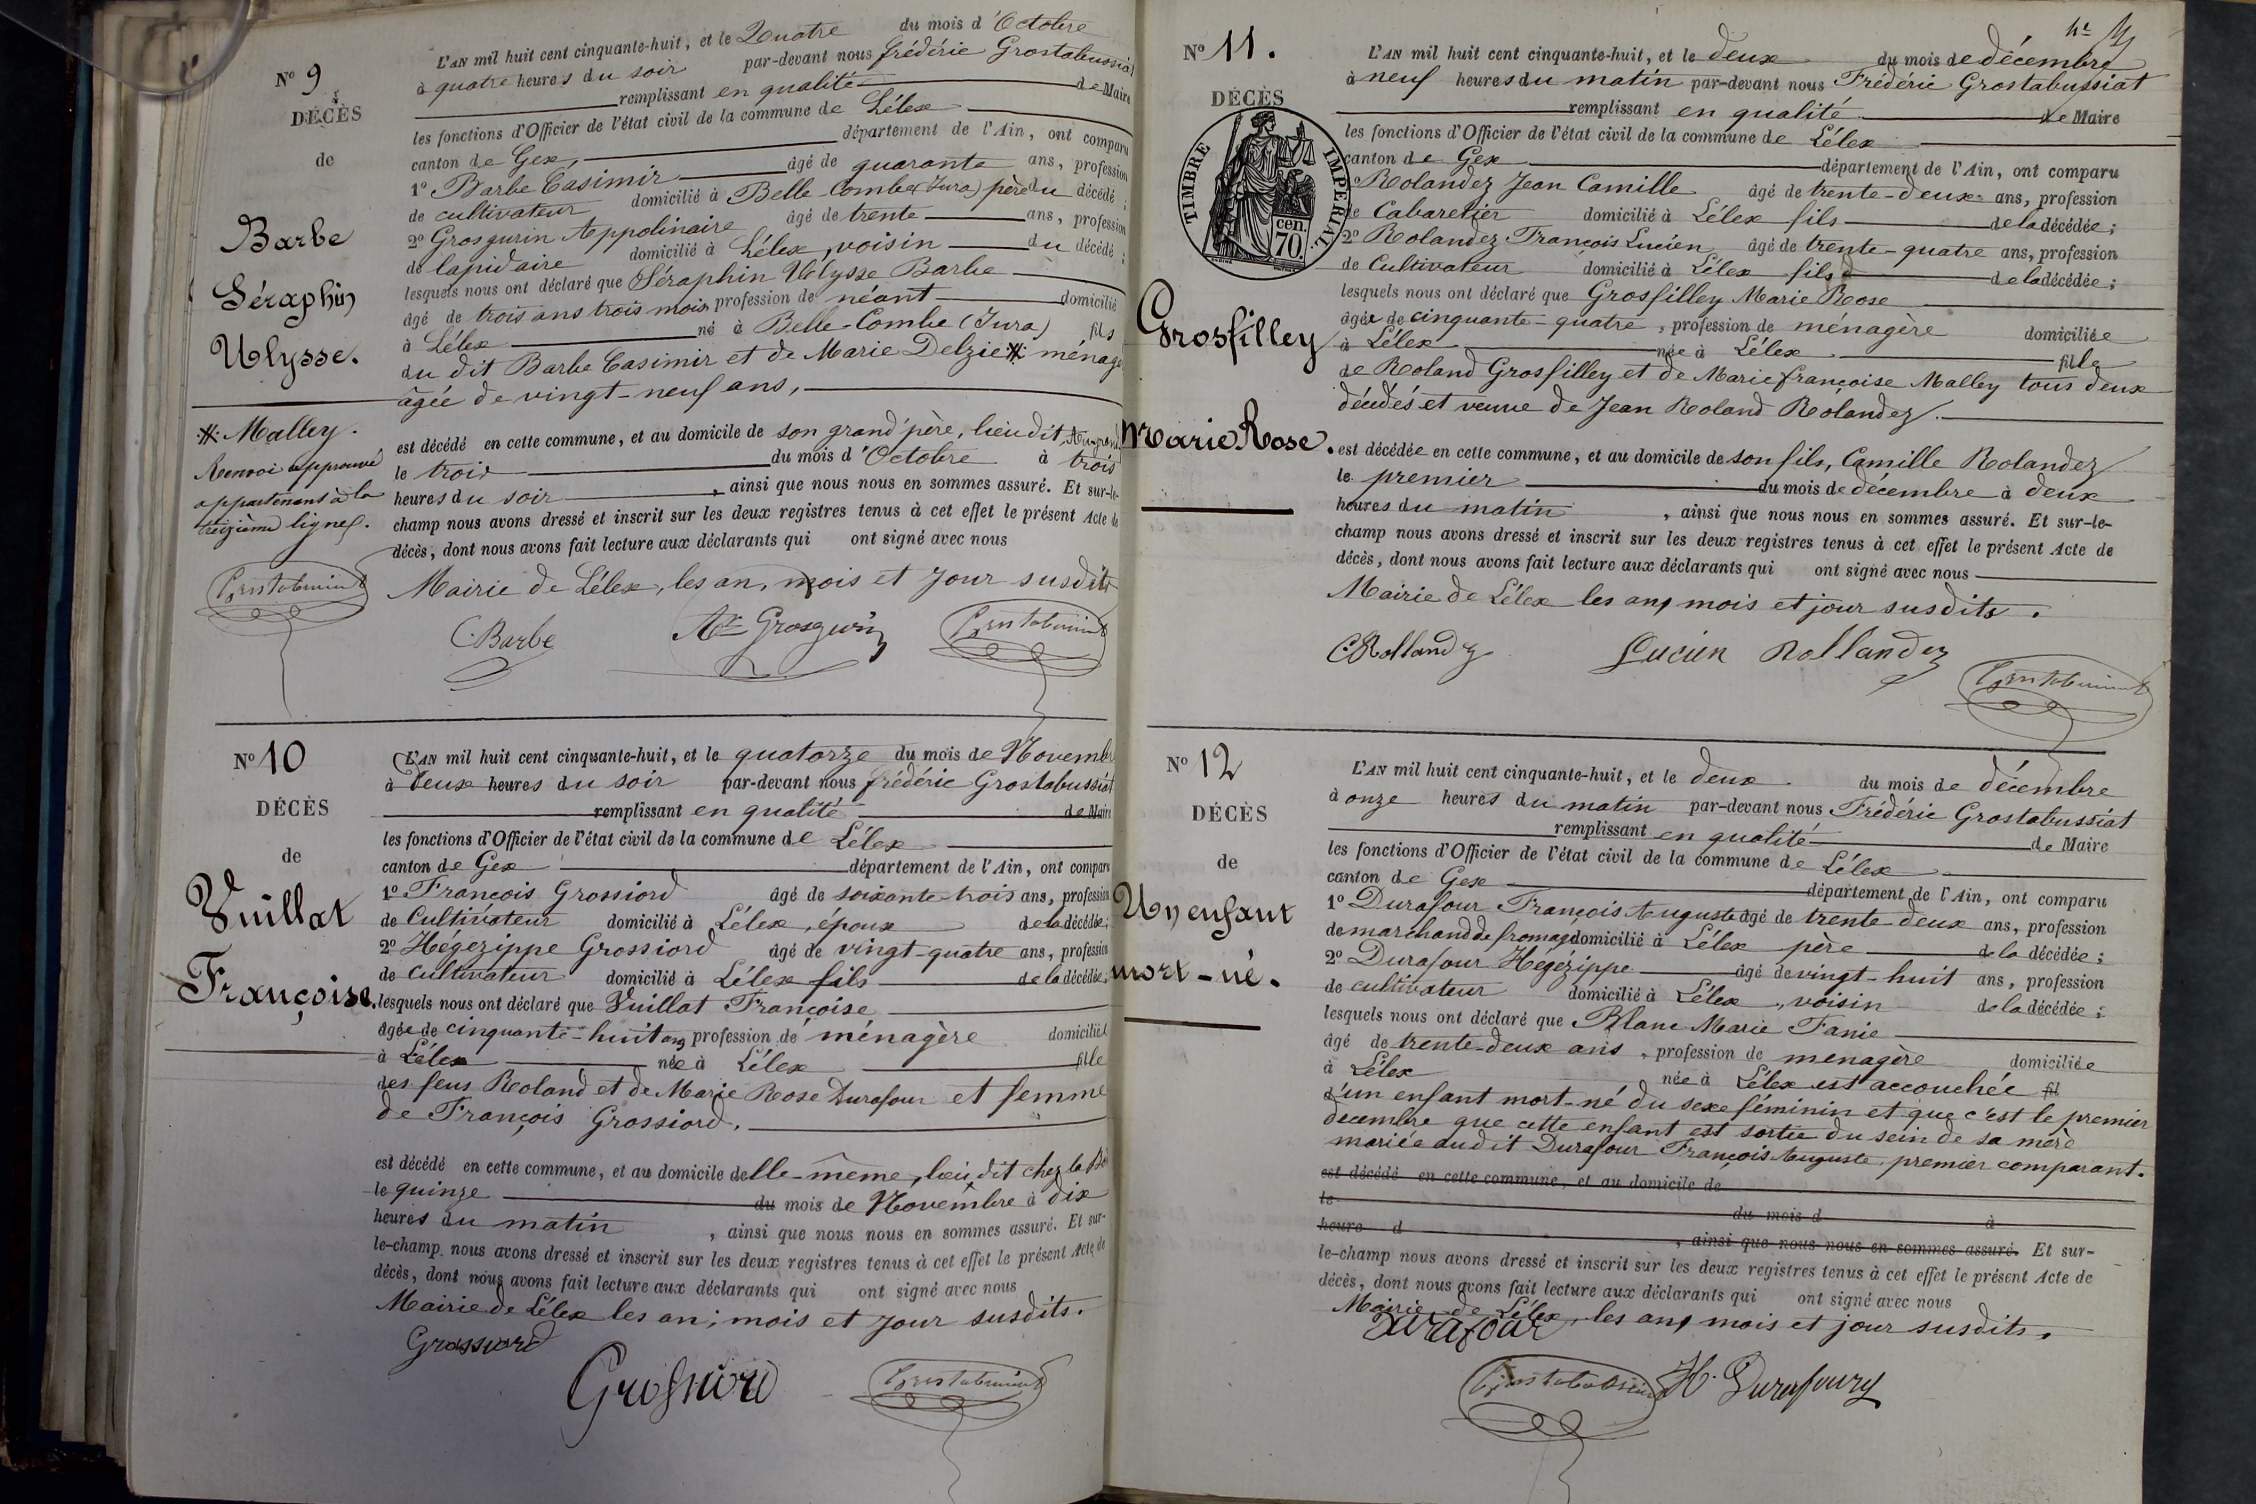 N° 9
DÉCÈS
de
Barbe
Séraphin
Ulysse.
L'AN mil huit cent cinquante-huit, et le Quatre du mois d'Octobre
à quatre heures du soir par-devant nous frédéric Grostabussiat
remplissant en qualité de Maire
les fonctions d'Officier de l'état civil de la commune de Lélex
canton de Gex, département de l'Ain, ont comparu
1° Barbe Casimir âgé de quarante ans, profession
de cultivateur domicilié à Belle-Combe (Jura) père du décédé ;
2° Grosgurin Appolinaire âgé de trente ans, profession
de lapidaire domicilié à Lélex, voisin du décédé ;
lesquels nous ont déclaré que Séraphin Ulysse Barbe
âgé de trois ans trois mois, profession de néant domicilié
à Lélex né à Belle-Combe (Jura) fils
du dit Barbe Casimir et de Marie Delzie ⁜ ménagè
âgée de vingt-neuf ans,
⁜ Malley.
Renvoi approuvé
appartenans à la
treizième ligne.
est décédé en cette commune, et au domicile de son grand'père, lieu dit,
le trois du mois d'Octobre à trois
heures du soir, ainsi que nous nous en sommes assuré. Et sur-le-
champ nous avons dressé et inscrit sur les deux registres tenus à cet effet le présent Acte de
décès, dont nous avons fait lecture aux déclarants qui ont signé avec nous
Mairie de Lélex, les an, mois et jour susdits
C. Barbe Grosgurin Grostabussiat
N° 10
DÉCÈS
de
Vuillat
Françoise.
L'AN mil huit cent cinquante-huit, et le quatorze du mois de Novembre
à deux heures du soir par-devant nous frédéric Grostabussiat
remplissant en qualité de Maire
les fonctions d'Officier de l'état civil de la commune de Lélex
canton de Gex département de l'Ain, ont comparu
1° François Grossiord âgé de soixante-trois ans, profession
de Cultivateur domicilié à Lélex, époux de la décédée ;
2° Hégézippe Grossiord âgé de vingt-quatre ans, profession
de cultivateur domicilié à Lélex fils de la décédée,
lesquels nous ont déclaré que Vuillat Françoise
âgée de cinquante-huit ans, profession de ménagère domicilié
à Lélex née à Lélex fille
des feus Roland et de Marie Rose Durafour et femme
de François Grossiord.
est décédé en cette commune, et au domicile d'elle-même, lieu dit chez le
le quinze du mois de Novembre à dix
heures du matin, ainsi que nous nous en sommes assuré. Et sur-
le-champ nous avons dressé et inscrit sur les deux registres tenus à cet effet le présent Acte de
décès, dont nous avons fait lecture aux déclarants qui ont signé avec nous
Mairie de Lélex les an, mois et jour susdits.
Grossiord
Grossiord Grostabussiat
N° 11.
DÉCÈS
TIMBRE IMPÉRIAL.
cen.
70.
Grosfilley
Marie Rose.
L'AN mil huit cent cinquante-huit, et le deux du mois de décembre
à neuf heures du matin par-devant nous Frédéric Grostabussiat
remplissant en qualité de Maire
les fonctions d'Officier de l'état civil de la commune de Lélex
canton de Gex département de l'Ain, ont comparu
Rolandez Jean Camille âgé de trente-deux ans, profession
de Cabaretier domicilié à Lélex fils de la décédée ;
2° Rolandez François Lucien âgé de trente-quatre ans, profession
de Cultivateur domicilié à Lélex fils de la décédée ;
lesquels nous ont déclaré que Grosfilley Marie Rose
âgée de cinquante-quatre, profession de ménagère domiciliée
à Lélex née à Lélex fille
de Roland Grosfilley et de Marie françoise Malley tous deux
décédés et veuve de Jean Roland Rolandez.
est décédée en cette commune, et au domicile de son fils, Camille Rolandez
le premier du mois de décembre à deux
heures du matin, ainsi que nous nous en sommes assuré. Et sur-le-
champ nous avons dressé et inscrit sur les deux registres tenus à cet effet le présent Acte de
décès, dont nous avons fait lecture aux déclarants qui ont signé avec nous
Mairie de Lélex les an, mois et jour susdits.
C. Rollandez Lucien Rollandez
Grostabussiat
N° 12
DÉCÈS
de
Un enfant
mort-né.
L'AN mil huit cent cinquante-huit, et le deux du mois de décembre
à onze heures du matin par-devant nous Frédéric Grostabussiat
remplissant en qualité de Maire
les fonctions d'Officier de l'état civil de la commune de Lélex
canton de Gex département de l'Ain, ont comparu
1° Durafour François Auguste âgé de trente-deux ans, profession
de marchand de fromage domicilié à Lélex père de la décédée ;
2° Durafour Hégézippe âgé de vingt-huit ans, profession
de cultivateur domicilié à Lélex, voisin de la décédée ;
lesquels nous ont déclaré que Blanc Marie Fanie
âgé de trente-deux ans, profession de menagère domiciliée
à Lélex née à Lélex est accouchée fil
d'un enfant mort-né du sexe féminin et que c'est le premier
décembre que cette enfant est sortie du sein de sa mère
mariée audit Durafour François Auguste, premier comparant.
est décédé en cette commune, et au domicile de
le du mois d à
heure d , ainsi que nous nous en sommes assuré. Et sur-
le-champ nous avons dressé et inscrit sur les deux registres tenus à cet effet le présent Acte de
décès, dont nous avons fait lecture aux déclarants qui ont signé avec nous
Mairie de Lélex, les an, mois et jour susdits.
Durafour
Grostabussiat H. Durafourg